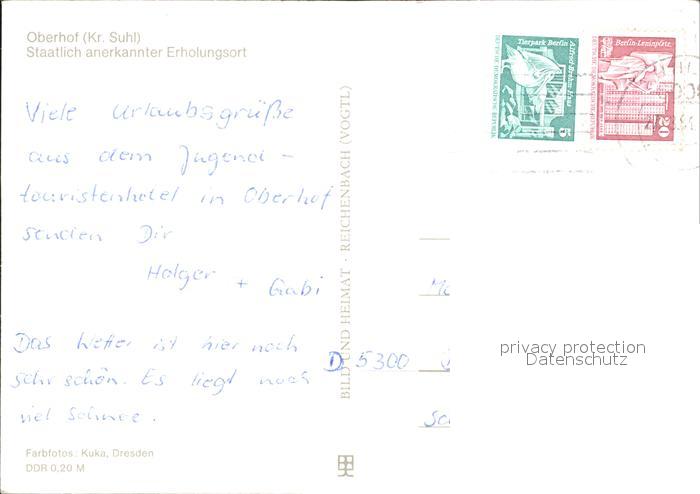 Oberhof (Kr. Suhl)
Staatlich anerkannter Erholungsort
Viele Urlaubsgrüße
aus dem Jugend-
touristenhotel in Oberhof
senden Dir
Holger + Gabi
Das Wetter ist hier noch
sehr schön. Es liegt noch
viel Schnee.
Farbfotos: Kuka, Dresden
DDR 0,20 M
BILD UND HEIMAT · REICHENBACH (VOGTL)
Tierpark Berlin
Alfred-Brehm-Haus
DEUTSCHE DEMOKRATISCHE REPUBLIK
5
Berlin-Leninplatz
DEUTSCHE DEMOKRATISCHE REPUBLIK
20
D 5300
privacy protection
Datenschutz